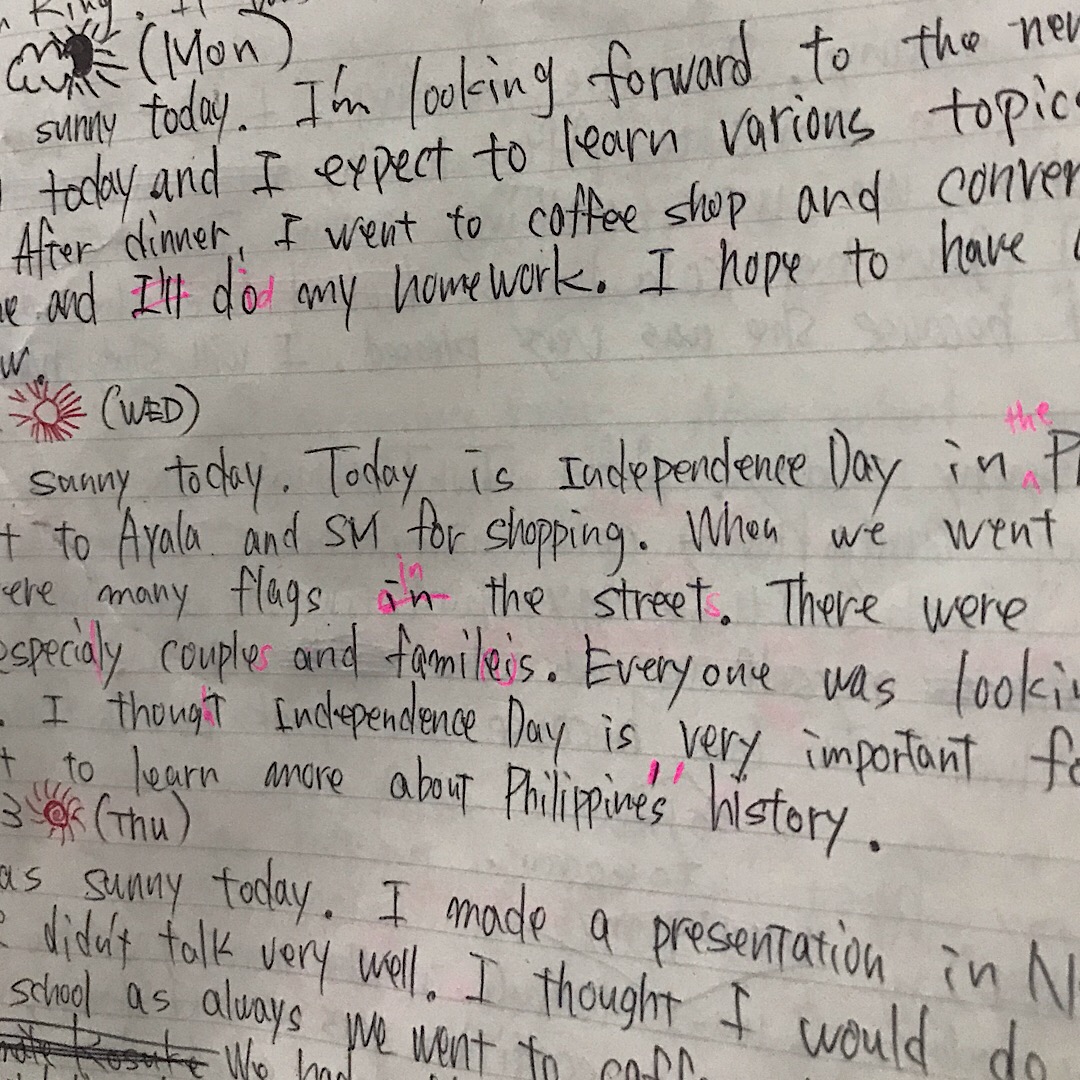 King.
(Mon)
sunny today. I'm looking forward to the new
today and I expect to learn various topics
After dinner, I went to coffee shop and conver
e and I'll did my homework. I hope to have
w.
(WED)
the
sunny today. Today is Independence Day in ^ Ph
t to Ayala and SM for shopping. When we went
in
ere many flags in the streets. There were
especialy couples and famileis. Everyone was looki
. I thougt Independence Day is very important fo
t to learn more about Philippine's history.
3 (Thu)
as sunny today. I made a presentation in N
didn't talk very well. I thought I would do
school as always We went to coff
We had